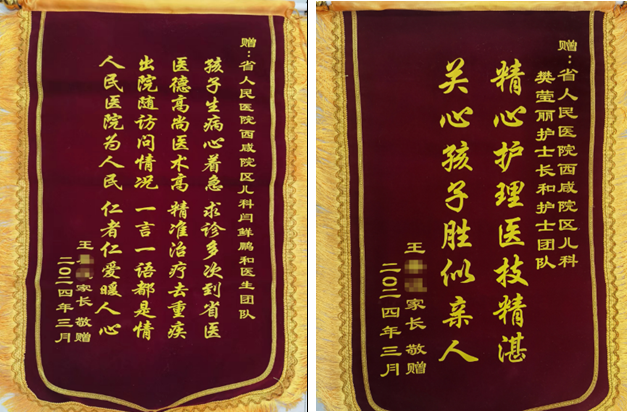 赠：省人民医院西咸院区儿科闫鲜鹏和医生团队
孩子生病心着急 求诊多次到省医
医德高尚医术高 精准治疗去重疾
出院随访问情况 一言一语都是情
人民医院为人民 仁者仁爱暖人心
王 家长 敬赠
二〇二四年三月
赠：省人民医院西咸院区儿科
樊莹丽护士长和护士团队
精心护理医技精湛
关心孩子胜似亲人
王 家长 敬赠
二〇二四年三月